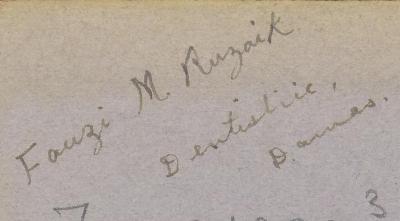 Fauzi M. Ruzaik
Dentistiie,
Damas.
7 3